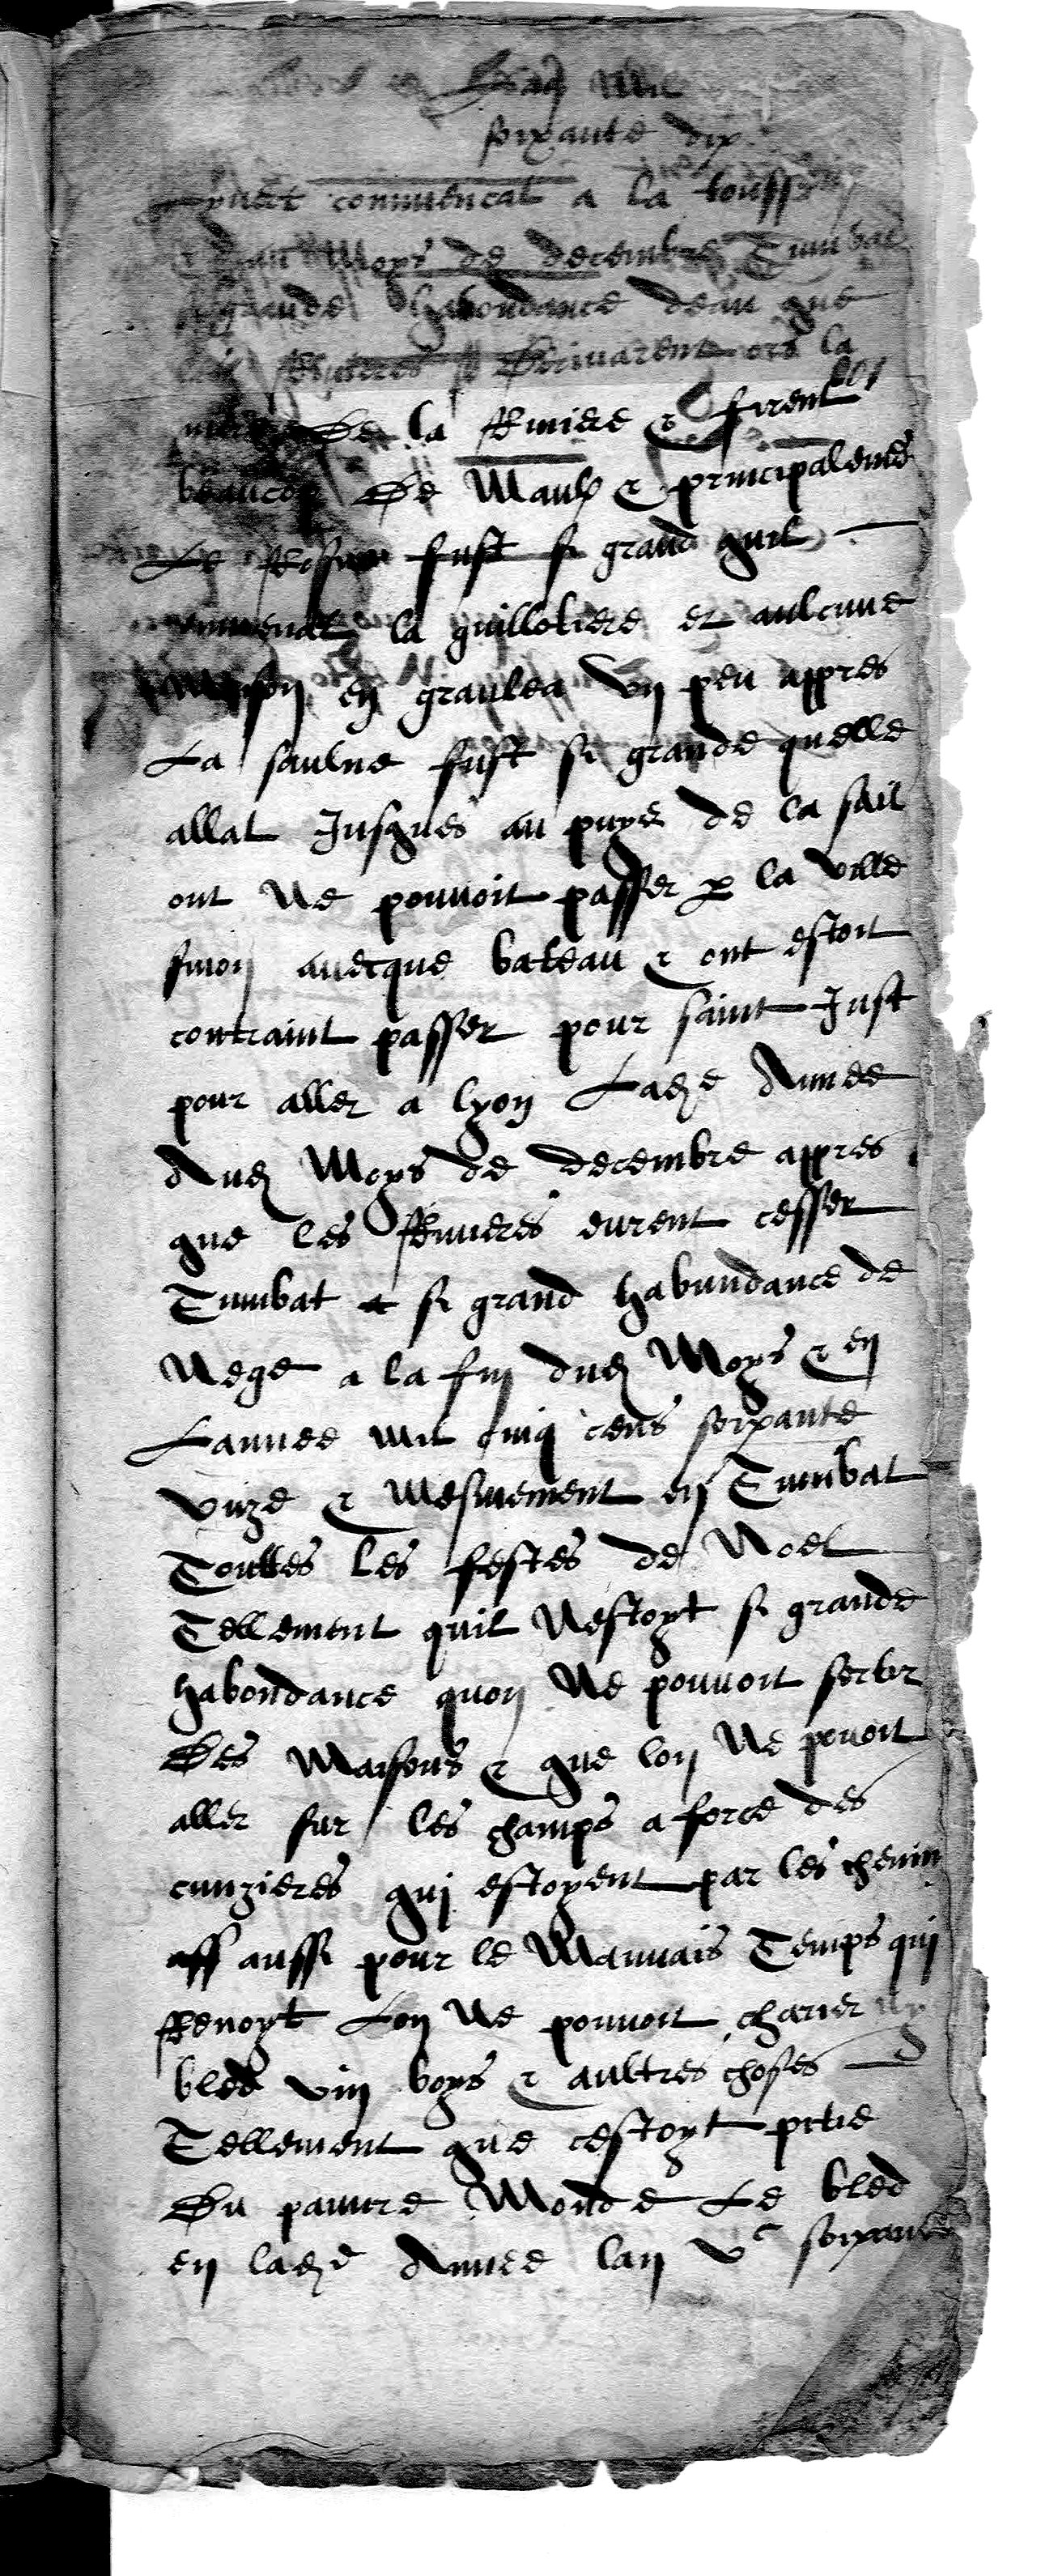 mil
soixante dix
commencat a la touss
moys de decembre Tumbat
grande habondance deau que
Rivieres la
de la Riviere & firent
beaucop de maulx & principalemet
Le Rosne fust si grand quil
la guillotiere et aulcune
maison en graulea Un peu appres
La saulne fust si grande quelle
allat Jusques au puys de la sail
ont ne pouvoit passer p la ville
sinon avecque bateau & ont estoit
contraint passer pour saint Just
pour aller a lyon Lade Annee
Aud moys de decembre appres
que les Rivieres eurent cesser
Tumbat si grand habundance de
nege a la fin dud moys & en
Lannee mil cinq cens soixante
unze & mesmement en Tumbat
Touttes les festes de Noel
Tellement quil nestoyt si grande
habondance quon ne pouvoit sortir
Des maisons & que lon ne povoit
aller sur les champs a force des
cunzieres qui estoyent par les chemin
aussi pour le mauvais Temps qui
Renoyt Lon ne pouvoit charier ny
bled vin boys & aultres choses
Tellement que cestoyt pitie
Du pauvre monde Le bled
en lade Annee lan Vc soixante